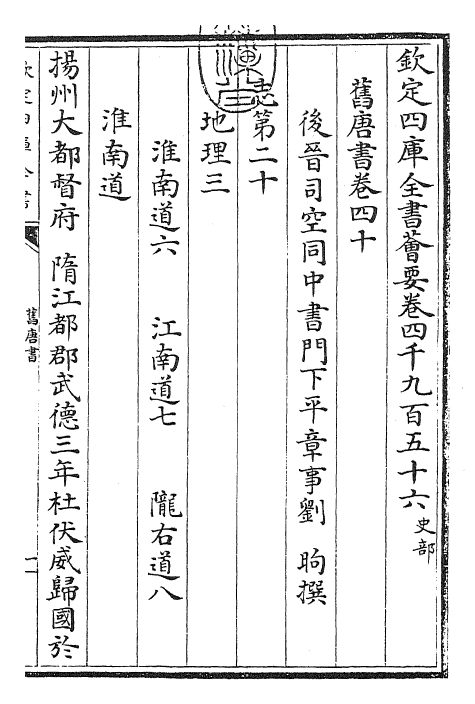 欽定四庫全書薈要卷四千九百五十六史部
舊唐書卷四十
後晉司空同中書門下平章事劉 昫撰
志第二十
地理三
淮南道六 江南道七 隴右道八
淮南道
揚州大都督府 隋江都郡武德三年杜伏威歸國於
欽定四庫全書
舊唐書
一